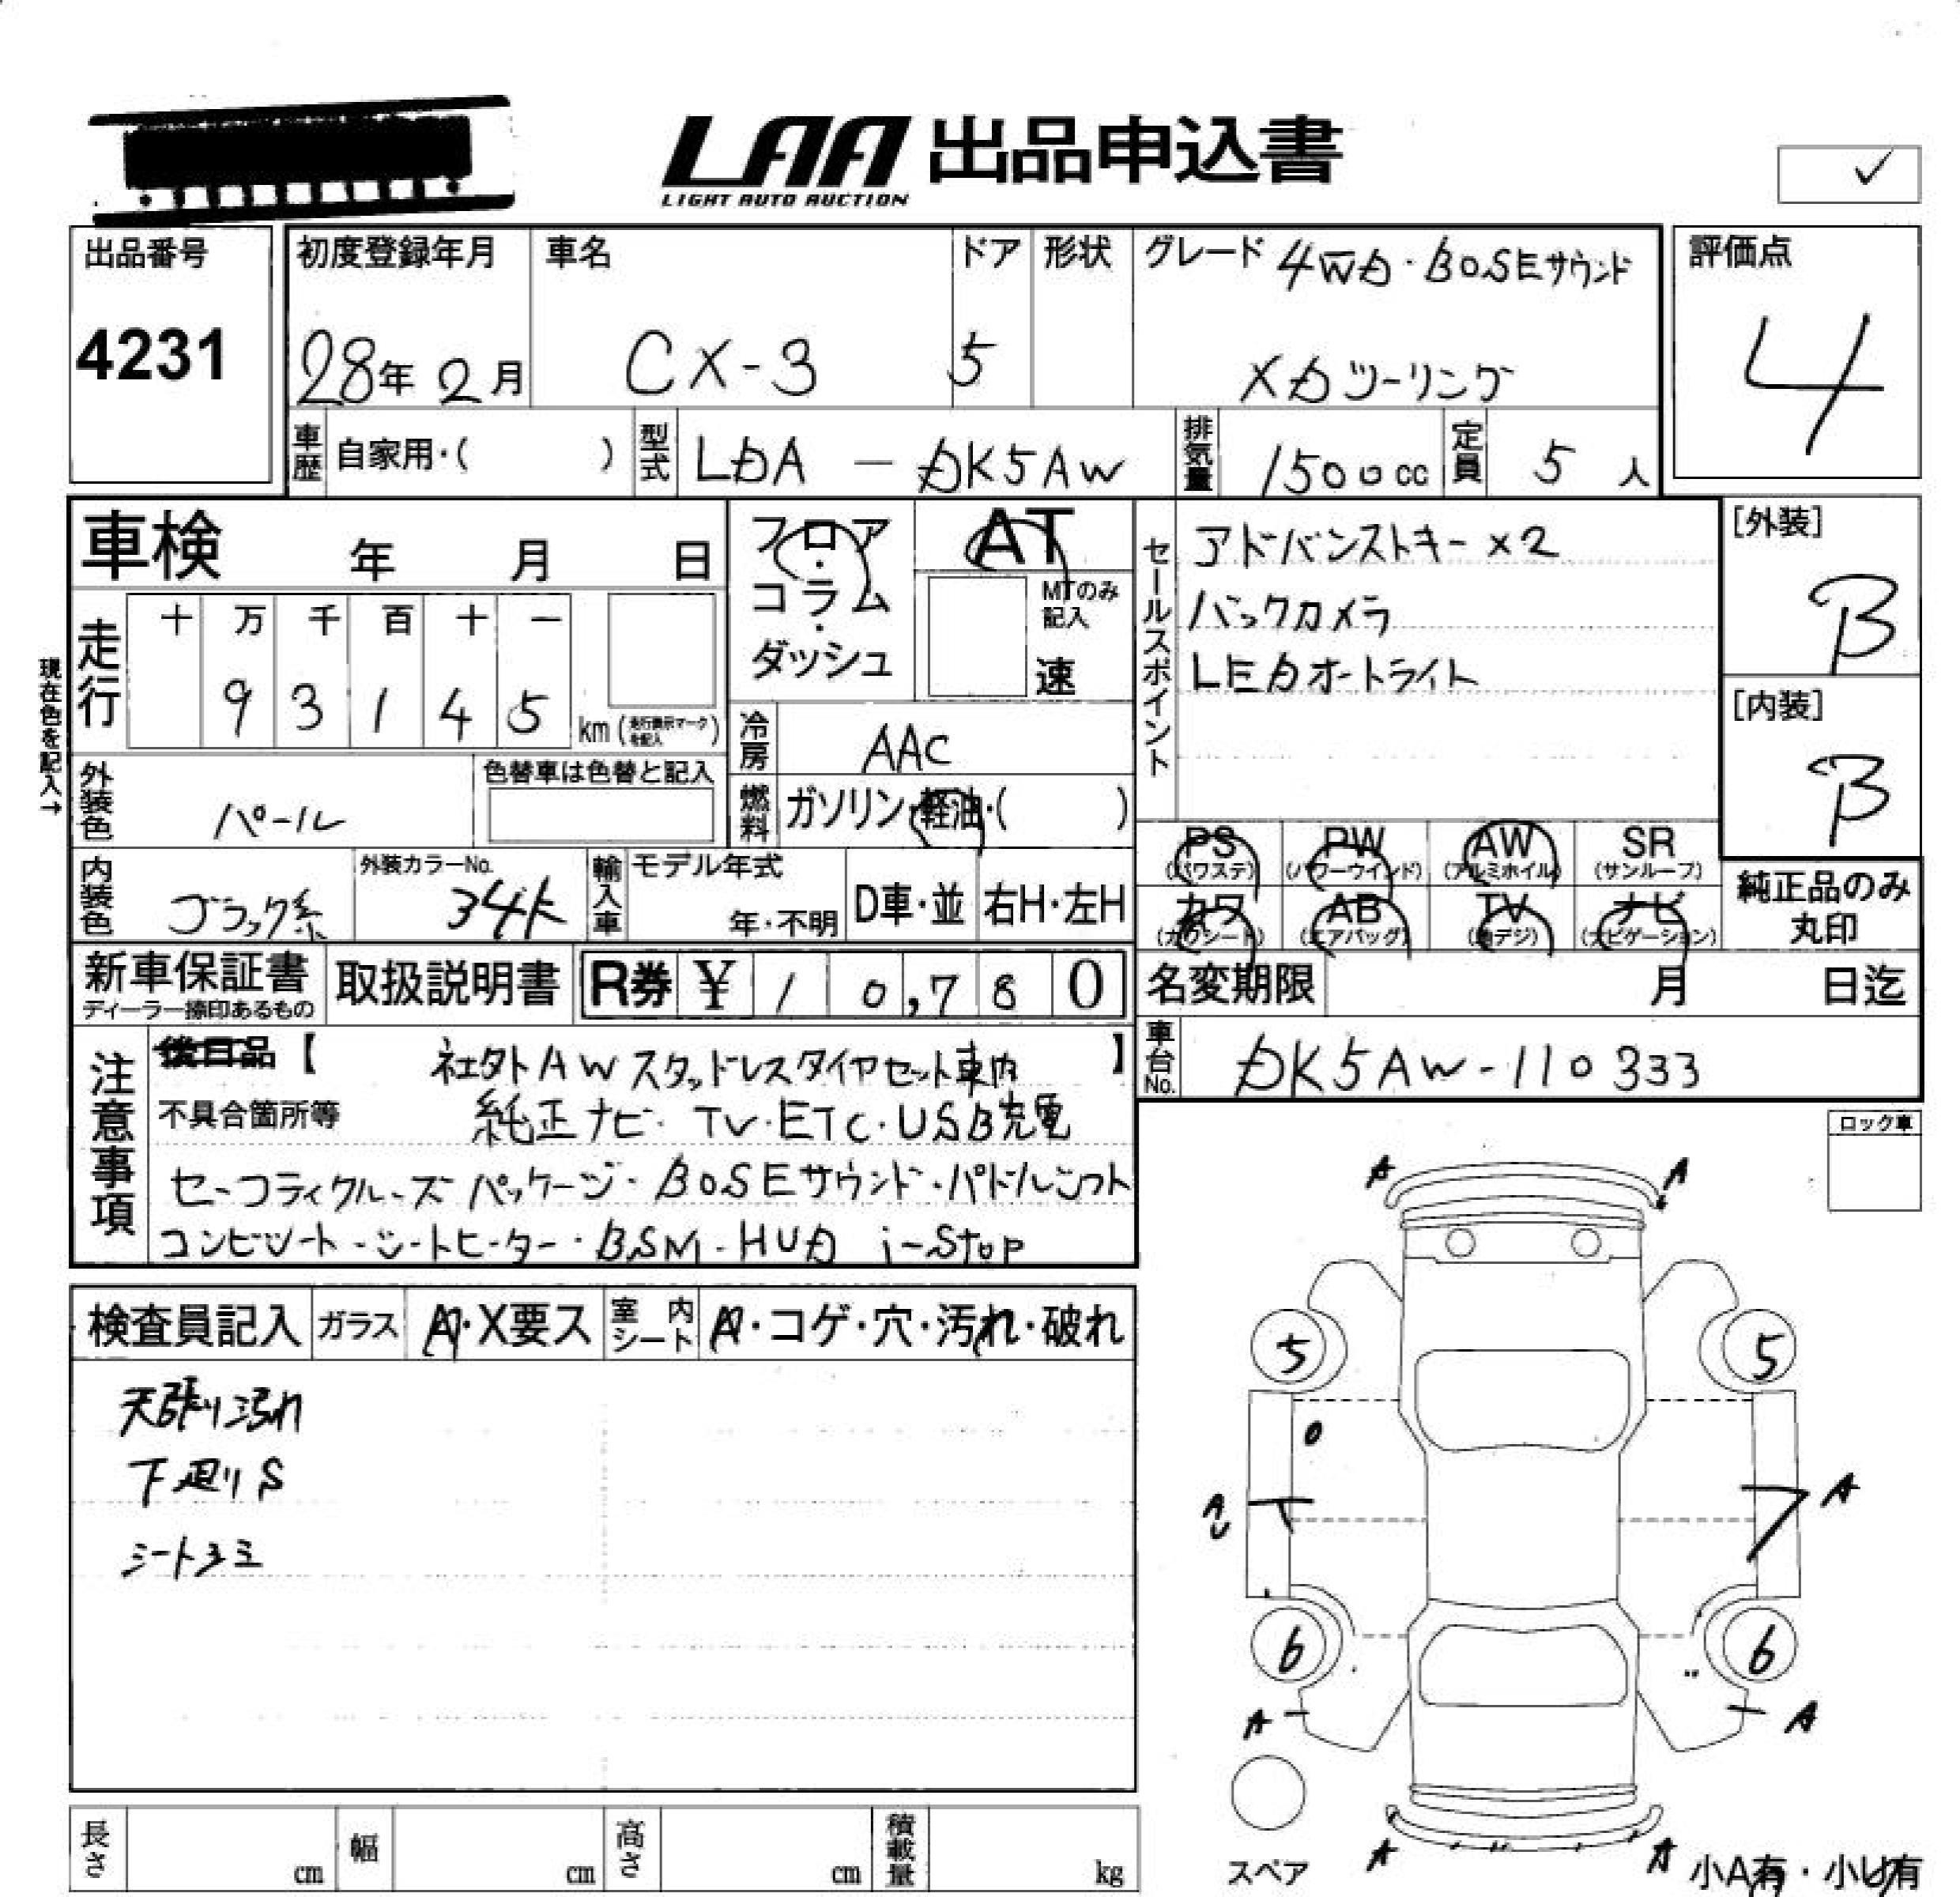 LAA 出品申込書
LIGHT AUTO AUCTION
✓
出品番号
4231
初度登録年月
28年 2月
車名
CX-3
ドア
5
形状
グレード 4WD・BOSEサウンド
XDツーリング
評価点
4
車歴 自家用・( )
型式 LDA － DK5AW
排気量 1500cc
定員 5人
車検 年 月 日
フロア・コラム・ダッシュ
AT
MTのみ記入
速
セールスポイント
アドバンストキー×2
バックカメラ
LEDオートライト
[外装]
B
[内装]
B
現在色を記入→
走行
十 万 千 百 十 一
9 3 1 4 5 km (走行表示マークを記入)
冷房 AAC
外装色 パール
色替車は色替と記入
燃料 ガソリン・軽油・( )
PS (パワステ) PW (パワーウインド) AW (アルミホイル) SR (サンルーフ)
カワ (カワシート) AB (エアバッグ) TV (地デジ) ナビ (ナビゲーション)
純正品のみ丸印
内装色 ブラック系
外装カラーNo. 34K
輸入車 モデル年式
年・不明
D車・並 右H・左H
新車保証書
ディーラー捺印あるもの
取扱説明書
R券 ¥ 10,780
名変期限 月 日迄
車台No. DK5AW-110333
注意事項
後日品【 社外AWスタッドレスタイヤセット車内 】
不具合箇所等 純正ナビ・TV・ETC・USB充電
セーフティクルーズパッケージ・BOSEサウンド・パドルシフト
コンビシート・シートヒーター・BSM・HUD i-stop
ロック車
検査員記入 ガラス A・X要ス 室内シート A・コゲ・穴・汚れ・破れ
天張り汚れ
下廻りS
シートシミ
A A
5 5
A
U
A
6 6
A A
スペア
A A
小A有・小U有
長さ cm 幅 cm 高さ cm 積載量 kg